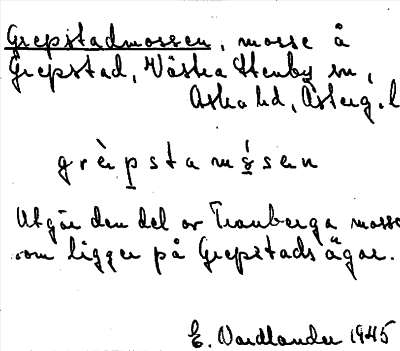 Grepstadmossen, mosse å
Grepstad, Västra Stenby sn,
Aska hd, Österg. l
grèpstamósen
Utgör den del av Tranberga mosse
som ligger på Grepstads ägor.
E. Nordlander 1945